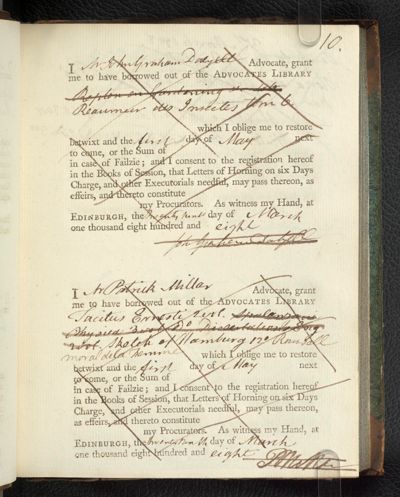 10.
I Mr John Graham Dalyell Advocate, grant
me to have borrowed out of the ADVOCATES LIBRARY
Reaumur des Insectes
which I oblige me to restore
betwixt and the first day of May next
to come, or the Sum of
in case of Failzie; and I consent to the registration hereof
in the Books of Session, that Letters of Horning on six Days
Charge, and other Executorials needful, may pass thereon, as
effeirs, and thereto constitute
my Procurators. As witness my Hand, at
EDINBURGH, the day of March
one thousand eight hundred and eight
I Mr Patrick Millar Advocate, grant
me to have borrowed out of the ADVOCATES LIBRARY
Tacitus Ernesti 2 vol.
Sketch of Hamburg 12o
moral de la which I oblige me to restore
betwixt and the first day of May next
to come, or the Sum of
in case of Failzie; and I consent to the registration hereof
in the Books of Session, that Letters of Horning on six Days
Charge, and other Executorials needful, may pass thereon, as
effeirs, and thereto constitute
my Procurators. As witness my Hand, at
EDINBURGH, the day of March
one thousand eight hundred and eight